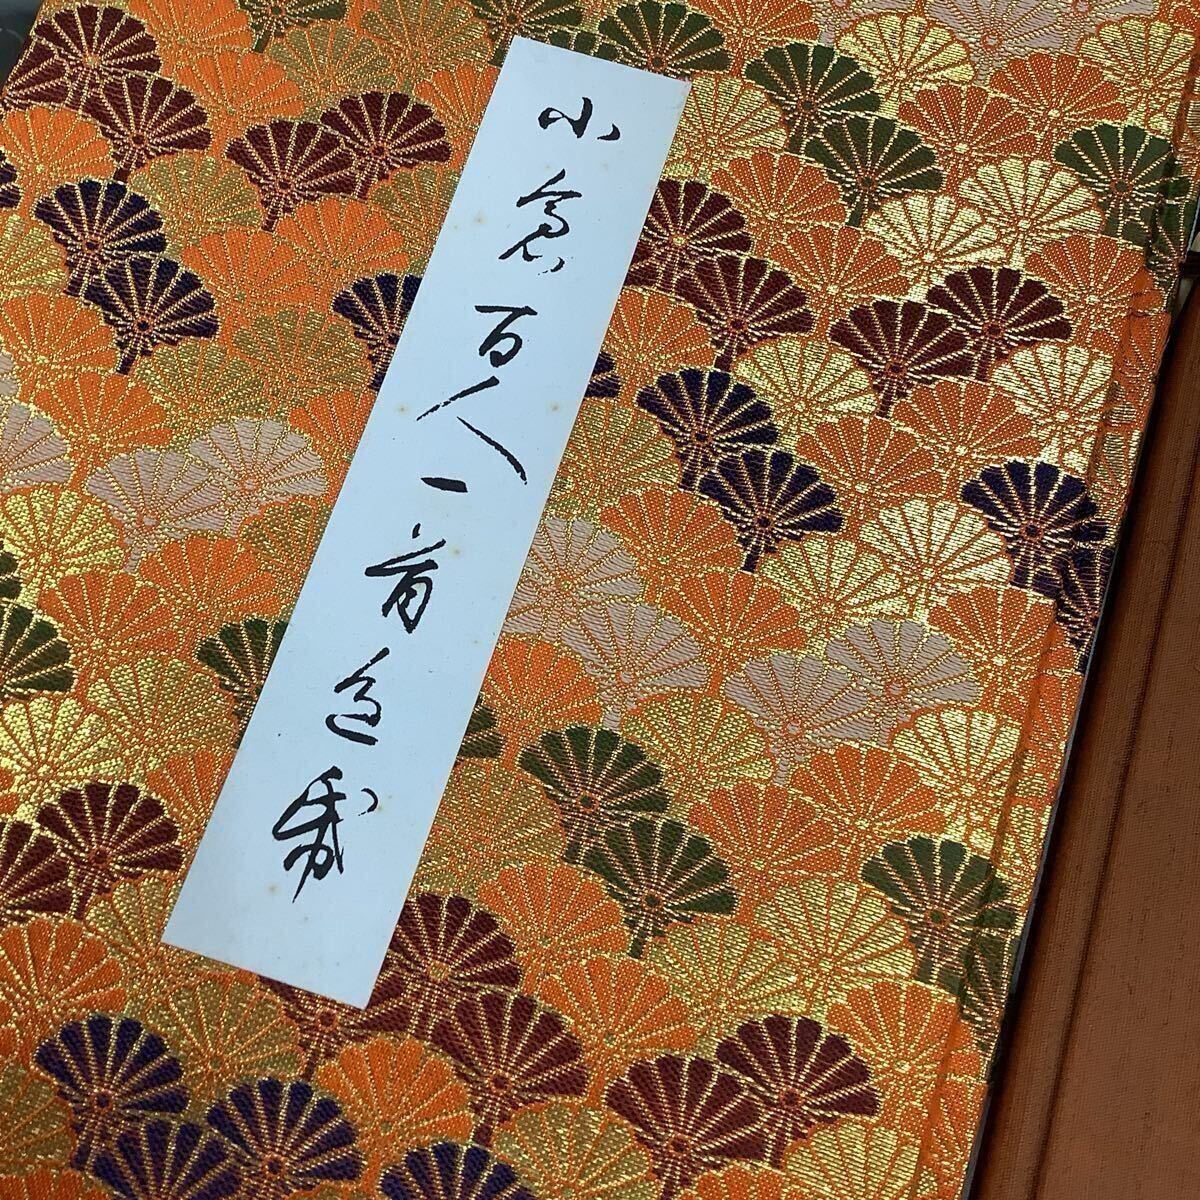 小倉百人一首色紙